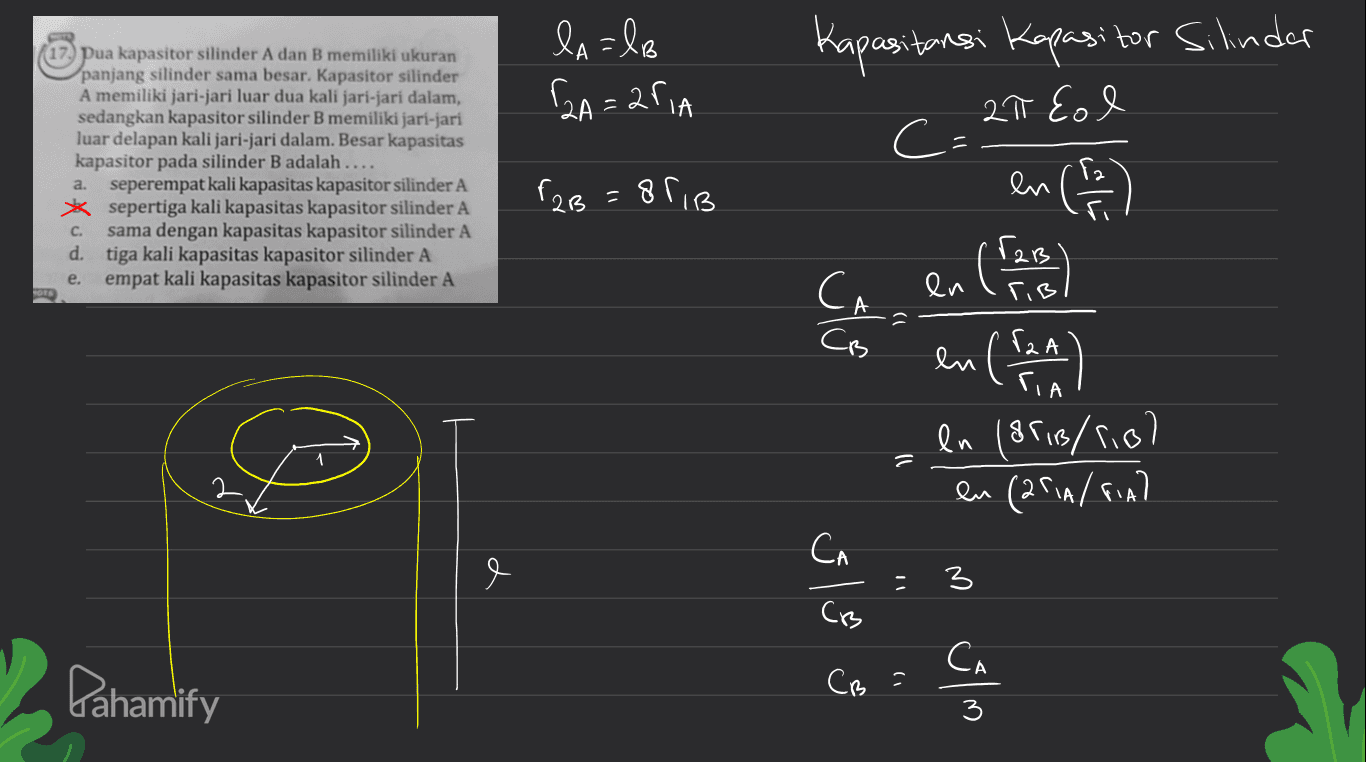 17. Dua kapasitor silinder A dan B memiliki ukuran
panjang silinder sama besar. Kapasitor silinder
A memiliki jari-jari luar dua kali jari-jari dalam,
sedangkan kapasitor silinder B memiliki jari-jari
luar delapan kali jari-jari dalam. Besar kapasitas
kapasitor pada silinder B adalah ....
a. seperempat kali kapasitas kapasitor silinder A
b. sepertiga kali kapasitas kapasitor silinder A
c. sama dengan kapasitas kapasitor silinder A
d. tiga kali kapasitas kapasitor silinder A
e. empat kali kapasitas kapasitor silinder A
HOTS
l_A = l_B
r_2A = 2r_1A
r_2B = 8r_1B
1
2
l
Kapasitansi Kapasitor Silinder
C = 2π ε_0 l / ln (r_2 / r_1)
C_A / C_B = ln (r_2B / r_1B) / ln (r_2A / r_1A)
= ln (8r_1B / r_1B) / ln (2r_1A / r_1A)
C_A / C_B = 3
C_B = C_A / 3
Pahamify